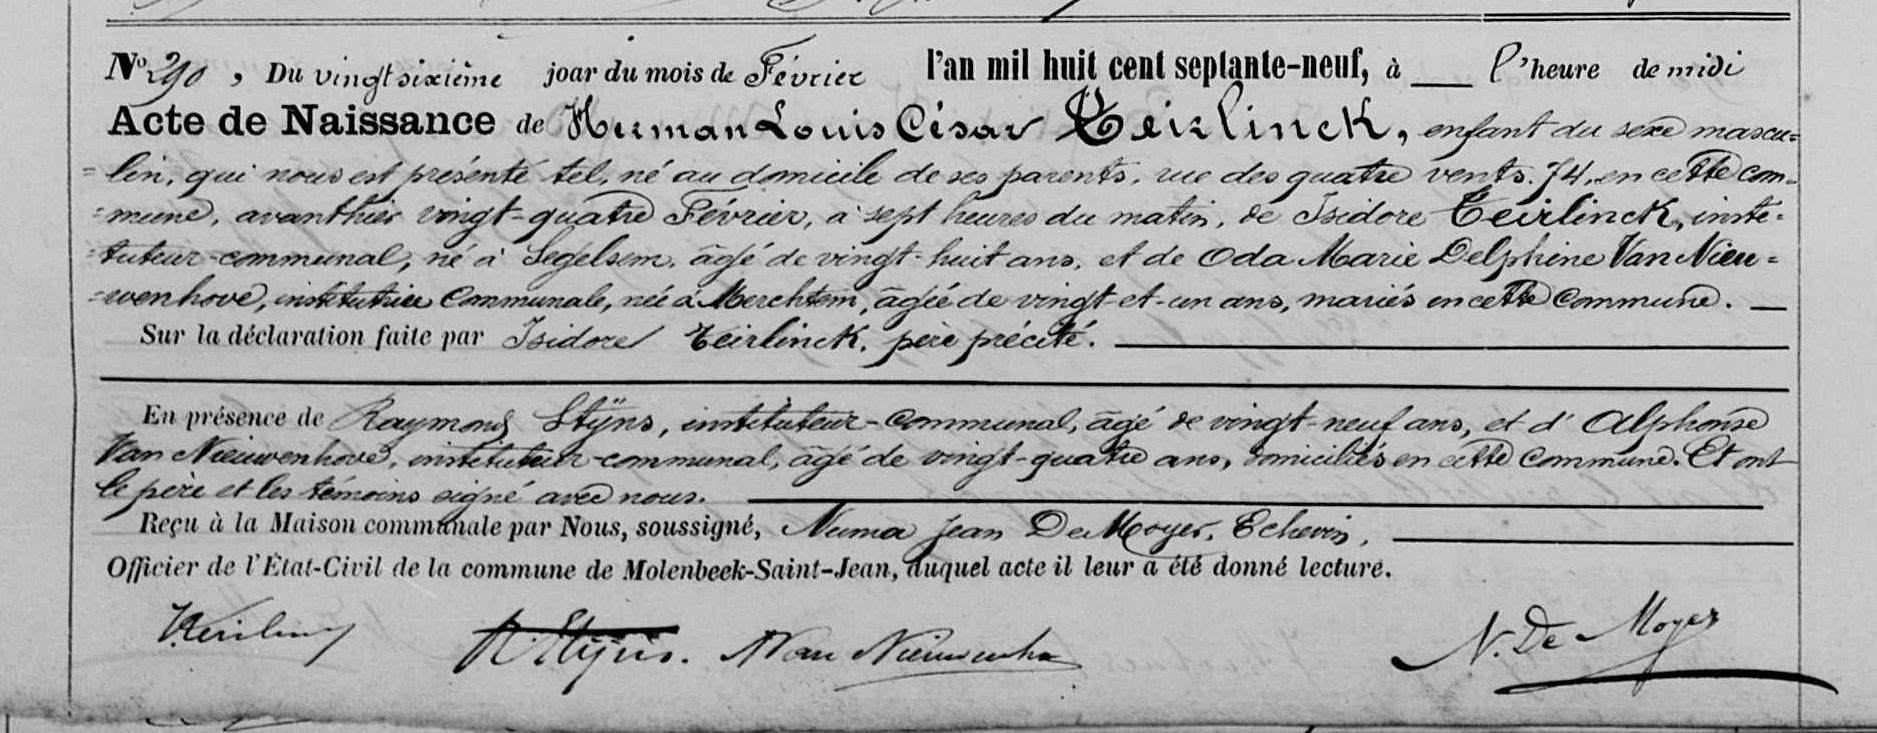 No 290, Du vingt sixième jour du mois de Février l'an mil huit cent septante-neuf, à ___ l'heure de midi
Acte de Naissance de Herman Louis César Teirlinck, enfant du sexe mascu=
=lin, qui nous est présenté tel, né au domicile de ses parents, rue des quatre vents. 74, en cette com=
=mune, avanthier vingt-quatre Février, à sept heures du matin, de Isidore Teirlinck, insti=
=tuteur-communal, né à Segelsem, âgé de vingt-huit ans, et de Oda Marie Delphine Van Nieu=
=wenhove, institutrice Communale, née à Merchtem, âgée de vingt-et-un ans, mariés en cette Commune. —
Sur la déclaration faite par Isidore Teirlinck, père précité.
En présence de Raymond Stÿns, instituteur-Communal, âgé de vingt-neuf ans, et d'Alphonse
Van Nieuwenhove, instituteur-communal, âgé de vingt-quatre ans, domiciliés en cette Commune. Et ont
le père et les témoins signé avec nous.
Reçu à la Maison communale par Nous, soussigné, Numa Jean De Moyer, Echevin,
Officier de l'État-Civil de la commune de Molenbeek-Saint-Jean, auquel acte il leur a été donné lecture.
Teirlinck R. Stÿns. AVan Nieuwenho N. De Moyer